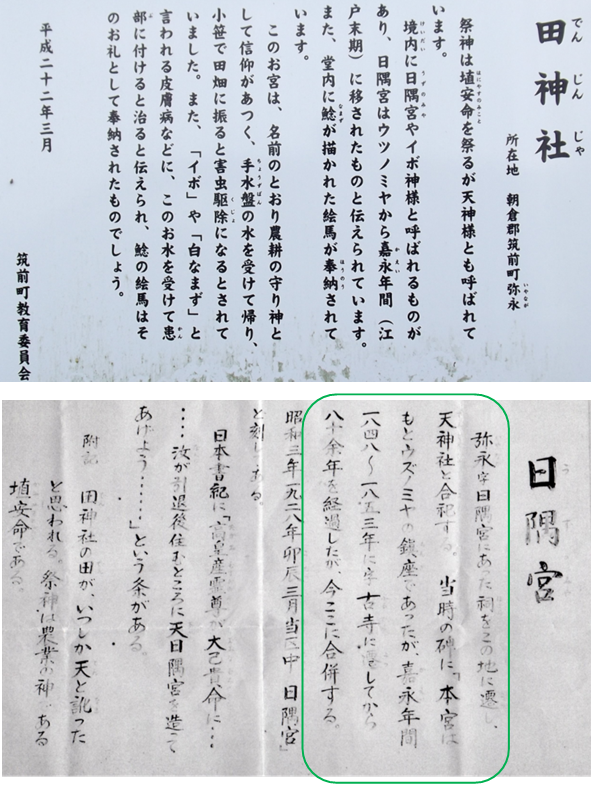 田神社
でんじんじゃ
所在地 朝倉郡筑前町弥永
いやなが
祭神は埴安命を祭るが天神様とも呼ばれて
はにやすのみこと
います。
境内に日隅宮やイボ神様と呼ばれるものが
けいだい うずのみや
あり、日隅宮はウツノミヤから嘉永年間(江
かえい
戸末期)に移されたものと伝えられています。
また、堂内に鯰が描かれた絵馬が奉納されて
なまず ほうのう
います。
このお宮は、名前のとおり農耕の守り神と
して信仰があつく、手水盤の水を受けて帰り、
ちょうずばん
小笹で田畑に振ると害虫駆除になるとされて
くじょ
いました。また、「イボ」や「白なまず」と
言われる皮膚病などに、このお水を受けて患
かん
部に付けると治ると伝えられ、鯰の絵馬はそ
ぶ
のお礼として奉納されたものでしょう。
平成二十二年三月
筑前町教育委員会
日隅宮
弥永字日隅宮にあった祠をこの地に遷し、
天神社と合祀する。 当時の碑に「本宮は
もとウズノミヤの鎮座であったが、嘉永年間
一八四八〜一八五三年に字古寺に遷してから
八十余年を経過したが、今ここに合併する。
昭和三年一九二八年卯辰三月当区中 日隅宮」
と刻してある。
日本書紀に「高皇産霊尊が大己貴命に・・・
・・・汝が引退後住むところに天日隅宮を造って
あげよう・・・・・・」という条がある。
附記 田神社の田が、いつしか天と訛った
と思われる。祭神は農業の神である
埴安命である。